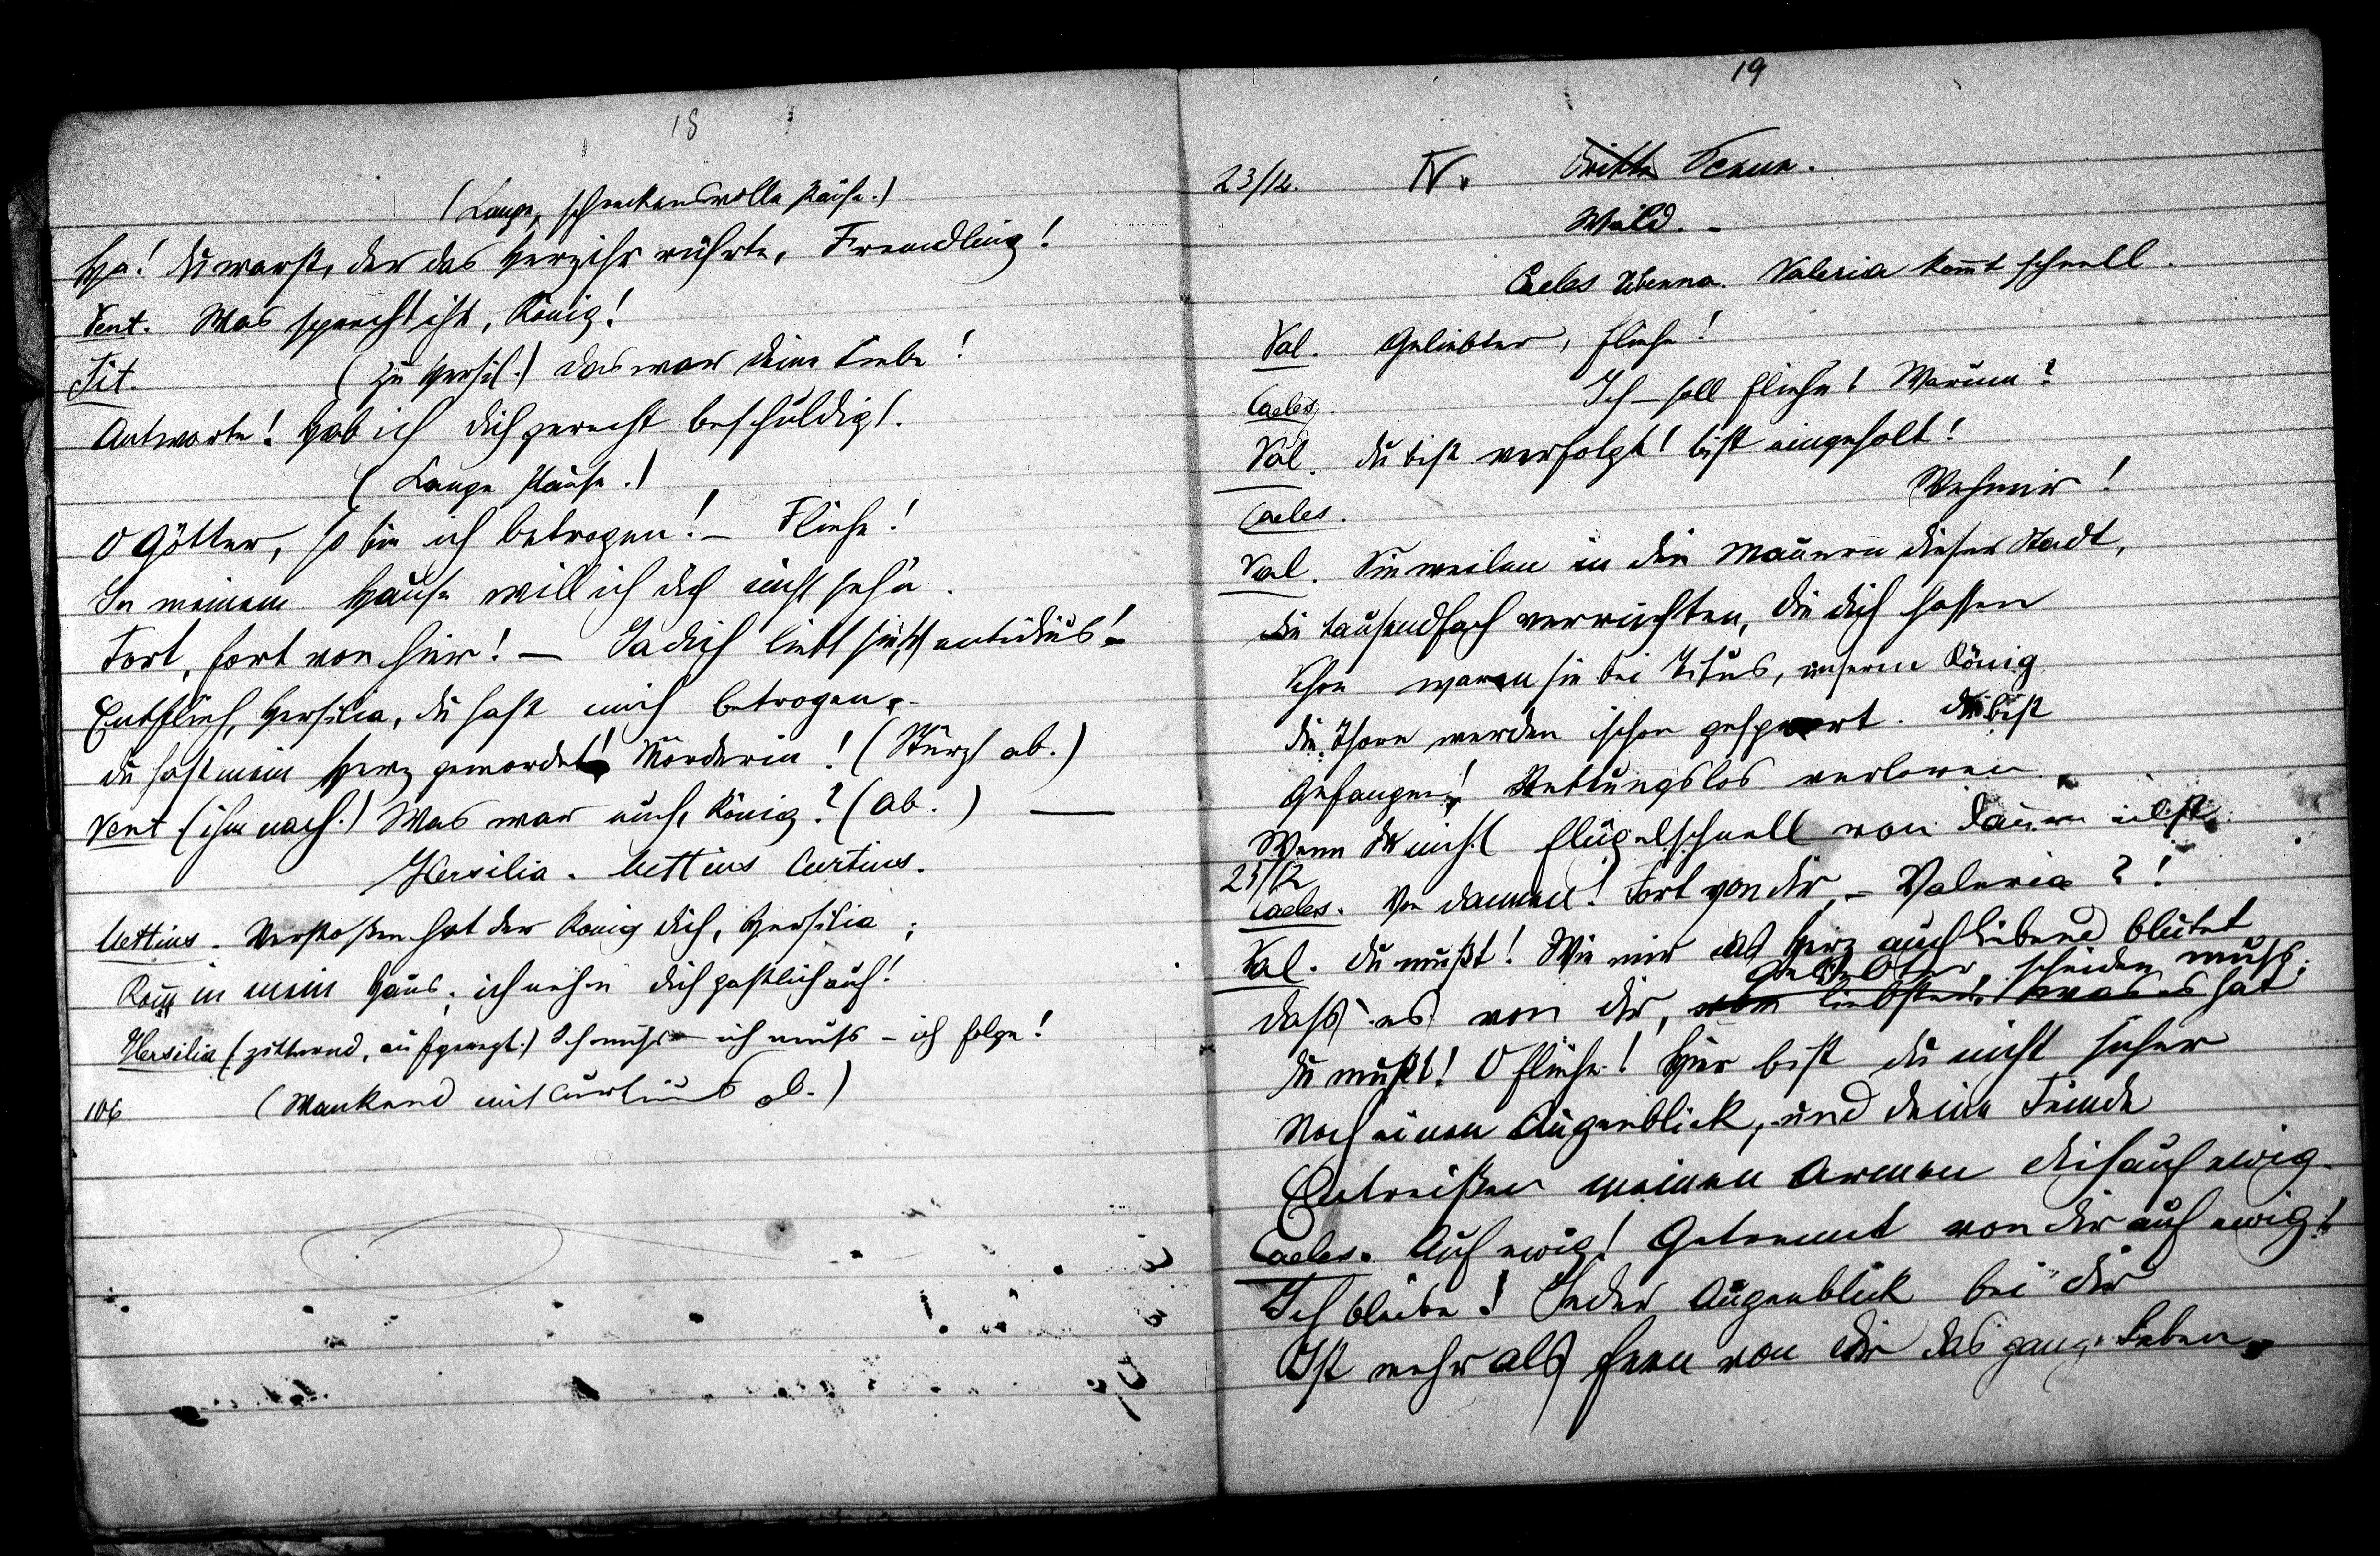 18
(Lange, schreckensvolle Pause.)
Ha! Du warst, der das Herz ihr rührte, Fremdling!
Vent. Was sprecht ihr, König!
Tit. (Zu Hersil.) Das war deine Liebe!
Antworte! Hab ich dich gerecht beschuldigt.
(Lange Pause.)
O Götter, so bin ich betrogen! – Fliehe!
In meinem Hause will ich dich nicht sehn.
Fort, fort von hier! – Ja dich liebt sie,
Entflieh, Hersilia, du hast mich betrogen,
du hast mein Herz gemordet! Mörderin! (Stürzt ab.)
Vent. (ihm nach.) Was war euch, König? (Ab.) —
Hersilia. Mettius Curtius.
Mettius. Verstoßen hat der König dich, Hersilia;
Kom̅ in mein Haus, ich nehme dich gastlich auf!
Hersilia (zitternd, aufgeregt.) Ich muß – ich muß – ich folge!
106 (Wankend mit Curtius ab.)
19
23/12. IV. Dritte Scene.
Wald. –
Caeles Vibenna. Valeria kom̅t schnell.
Val. Geliebter, fliehe!
Caeles. Ich – soll fliehn! Warum?
Val. Du bist verfolgt! bist eingeholt!
Caeles. Weh mir!
Val. Sie weilen in den Mauern dieser Stadt,
Die tausendfach verruchten, die dich hassen
Schon waren sie bei Titus, unserm König
Die Thore werden schon gesperrt. Du bist
Gefangen! Rettungslos verloren
Wenn du nicht flügelschnell von dannen eilst.
25/12
Caeles. Von dannen! Fort von dir – Valeria?!
Val. Du mußt! Wie mir das Herz auch liebend blutet
Geliebter, scheiden muß;
daß es von dir, vom liebsten, was es hat
Du mußt! O fliehe! Hier bist du nicht sicher
Noch einen Augenblick, und deine Feinde
Entreißen meinen Armen dich auf ewig.
Caeles. Auf ewig! Getrennt von dir auf ewig!
Ich bleibe! Jeder Augenblick bei dir
Ist mehr als fern von dir das ganze Leben,